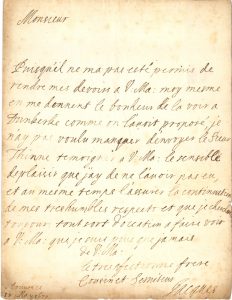 Monsieur
Puisquil ne ma pas esté permis de
rendre mes devoirs a V Ma: moy mesme
en me donnent le bonheur de la voir a
comme on lavoit proposé, je
nay pas voulu manquer denvoyer le Sieur
Thinne temoigner a V Ma: le sensible
deplaisir que jay de ne lavoir pas eu,
et au mesme temps lassurer la continuation
de mes tres humbles respects et que je
toujour tout sort doccation a faire voir
a V Ma: que je suis plus que jamais
de V Ma
tres affectionne frere
Cousin et Serviteur
Jacques